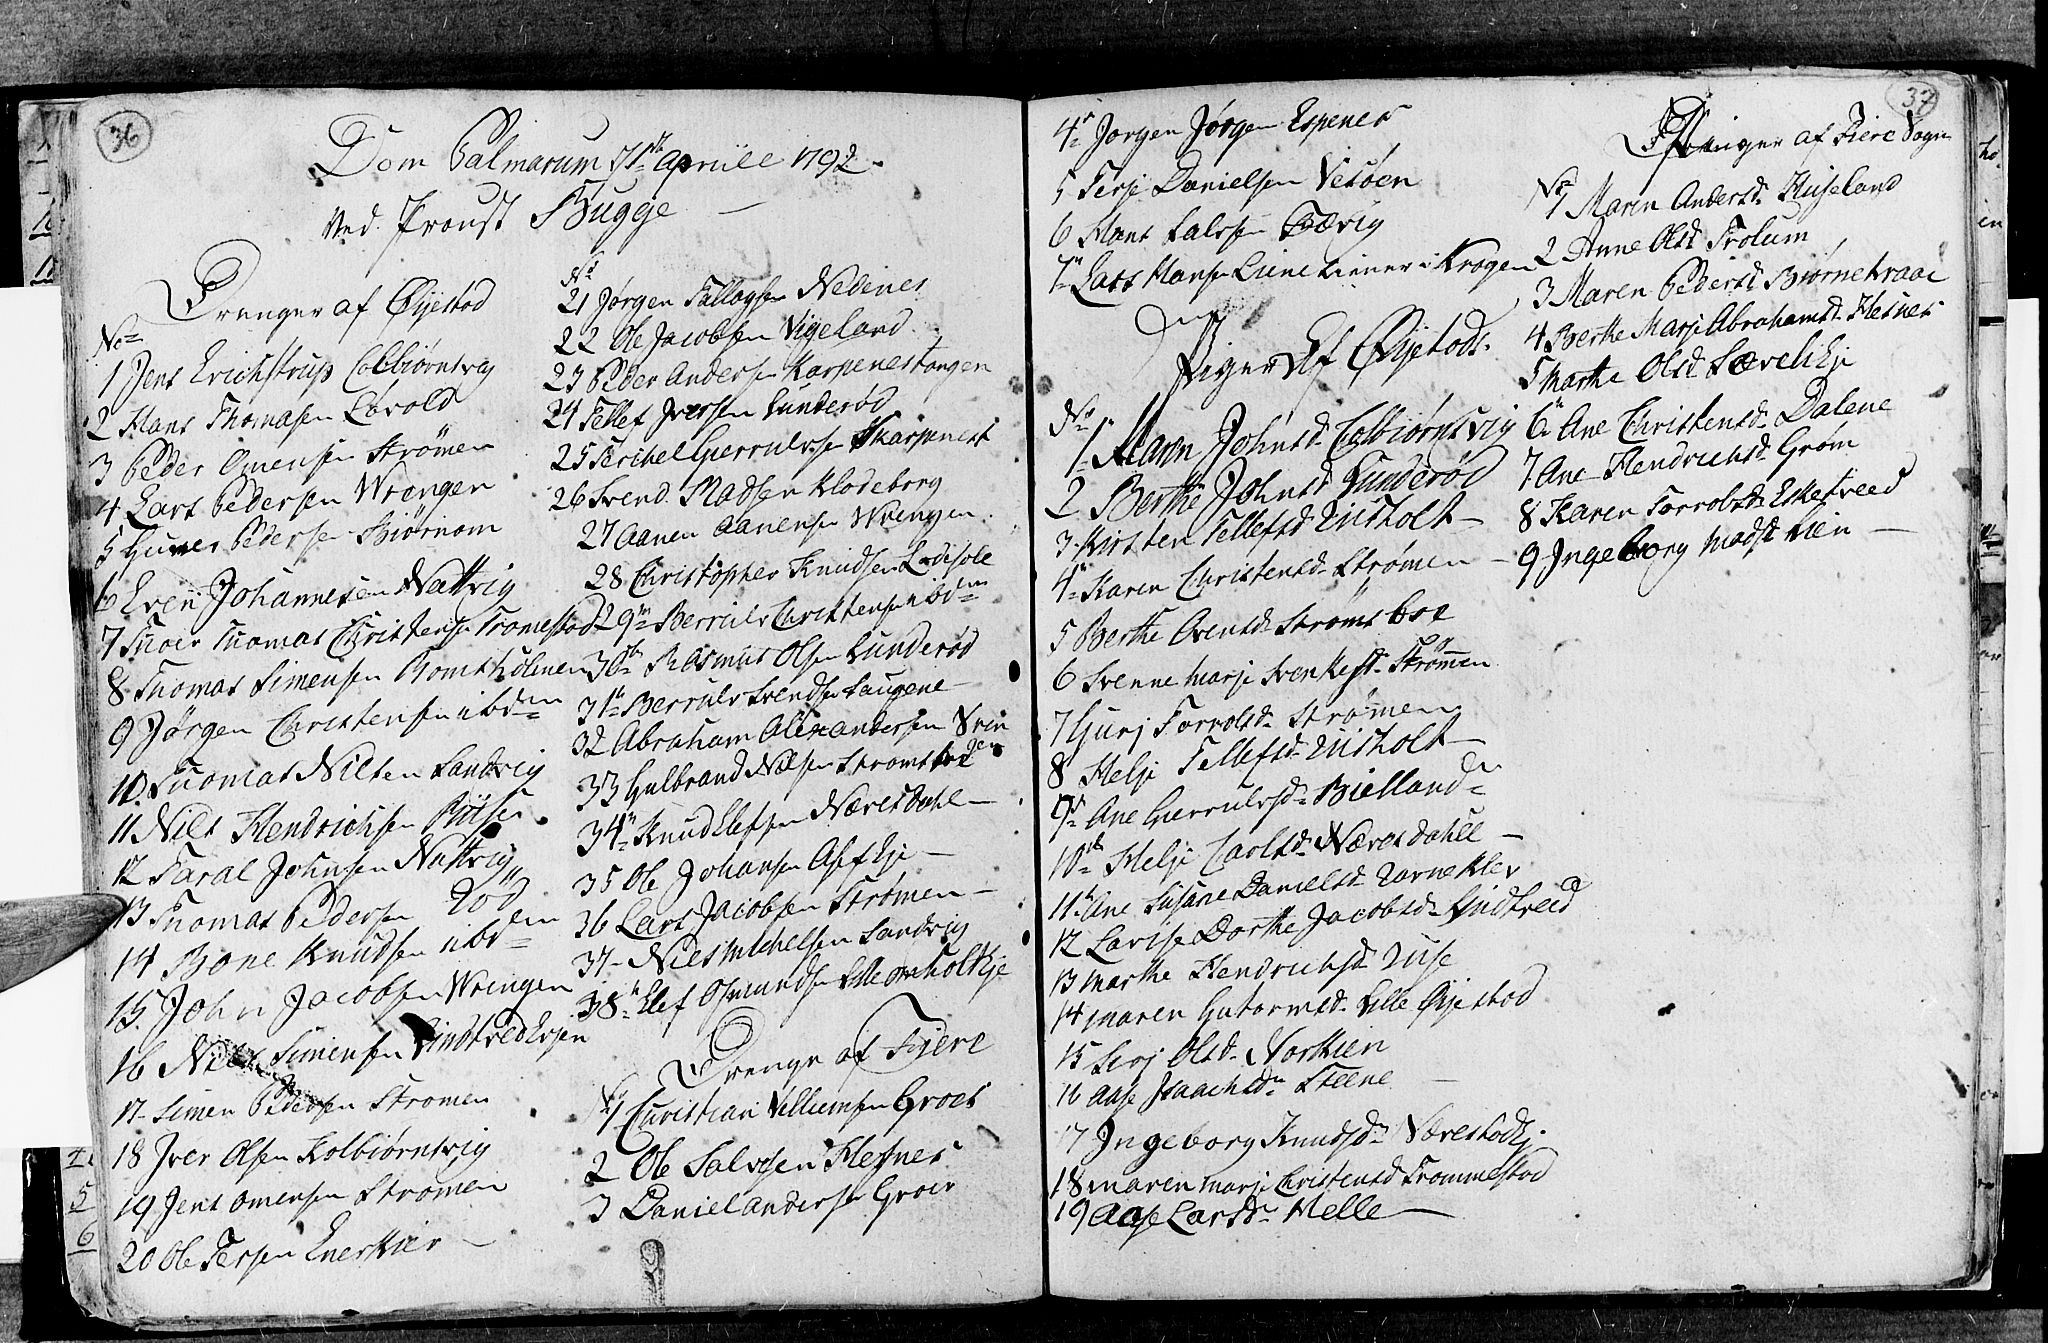 36
Dom Palmarum 1ste Apriile 1792
Ved Proust Bugge
Drenger af Øyestod
No
1 Jens Erichstrup Colbiørnsvig
2 Hans Thomasen Lovold
3 Peder Omensen Strømen
4 Lars Pedersen Wrengen
5 Guner Pedersen Biørnom
6 Even Johannesen Nattvig
7 Thoer Thomas Christensen Tromestod
8 Thomas Simensen Romsholmen
9 Jørgen Christensen ibdem
10 Thomas Nilsen Sandvig
11 Nils Hendrichsen
12 Taral Johnsen Nattvig
13 Thomas Pedersen Rød
14 Bone Knudsen ibdem
15 John Jacobsen Wrengen
16 Nils Simensen Lindtved Eyen
17 Simen Pedersen Strømen
18 Iver Olsen Kolbiørnsvig
19 Jens Omensen Strømen
20 Ole Tersen Enerkier
No
21 Jørgen Tallagsen Nedenes
22 Ole Jacobsen Vigeland
23 Peder Andersen Karpenestangen
24 Tellef Iversen Lunderød
25 Terchel Gierrulvsen Skarpenest
26 Svend Madsen Klodeborg
27 Aanen Aanensen Wrengen
28 Christopher Knudsen Lodisole
29 Berrulv Christensen ibdem
30 Rasmus Olsen Lunderød
31 Berrulv Svendsen Haugene
32 Abraham Alexandersen Vrengen
33 Gulbrand Nilsen Strømsboe
34 Knud Elefsen Næresdahl
35 Ole Johansen Asf Eje
36 Lars Jacobsen Strømen
37 Niels Michelsen Sandvig
38 Elef Osmundsen Lille Omholt Eje
Drenge af Fiere
No
1 Christian Villumsen Groes
2 Ole Salvesen Hesnes
3 Daniel Andersen Groes
37
4 Jorgen Jørgensen Espenes
5 Terje Danielsen Vesøen
6 Hans Salvsen Fævig
7 Lars Hansen Liene tiener i Krogen
Piger af Øyestods
No
1 Maren Johnsd Colbiørnsvig
2 Berthe Johnsd Lunderød
3 Kirsten Tellefsd Risholt
4 Karen Christensd Strømen
5 Berthe Evensd Strømsboe
6 Svenne Marje Svenkesd Strømen
7 Gurj Torvolsd Strømen
8 Helje Tellefsd Risholt
9 Ane Gierrulvsd Bielland
10 Helje Carlsd Næresdahl
11 Ane Susane Danielsd Tornekler
12 Lovise Dorthe Jacobsd Lindtveid
13 Marthe Hendrichsd Ruse
14 Maren Gutormsd Lille Øyestod
15 Siroj Olsd Norkien
16 Aase Isaachsd Steene
17 Ingeborg Knudsd Nærestod Ej
18 Maren Marje Christensd Trommestod
19 Aase Larsd Helle
Piniger af Fiere Sogn
No
1 Maren Andersd Huseland
2 Anne Olsd Frolum
3 Maren Pedersd Biørnekraae
4 Berthe Marje Abrahamsd Hesnes
5 Marthe Olsd Sæveli Eje
6 Ane Christensd Dalene
7 Ane Hendrichsd Grøm
8 Karen Torvolsd Esketveed
9 Ingeborg Madsd Lien